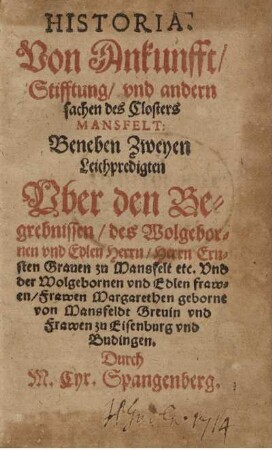 HISTORIA:
Von Ankunfft/
Stifftung/ vnd andern
sachen des Closters
MANSFELT:
Beneben Zweyen
Leichpredigten
Vber den Be-
grebnissen/ des Wolgebor-
nen vnd Edlen Herrn/ Herrn Ern-
sten Grauen zu Mansfelt etc. Vnd
der Wolgebornen vnd Edlen fraw-
en/ Frawen Margarethen geborne
von Mansfeldt Grevin vnd
Frawen zu Eisenburg vnd
Budingen.
Durch
M. Cyr. Spangenberg.
1714